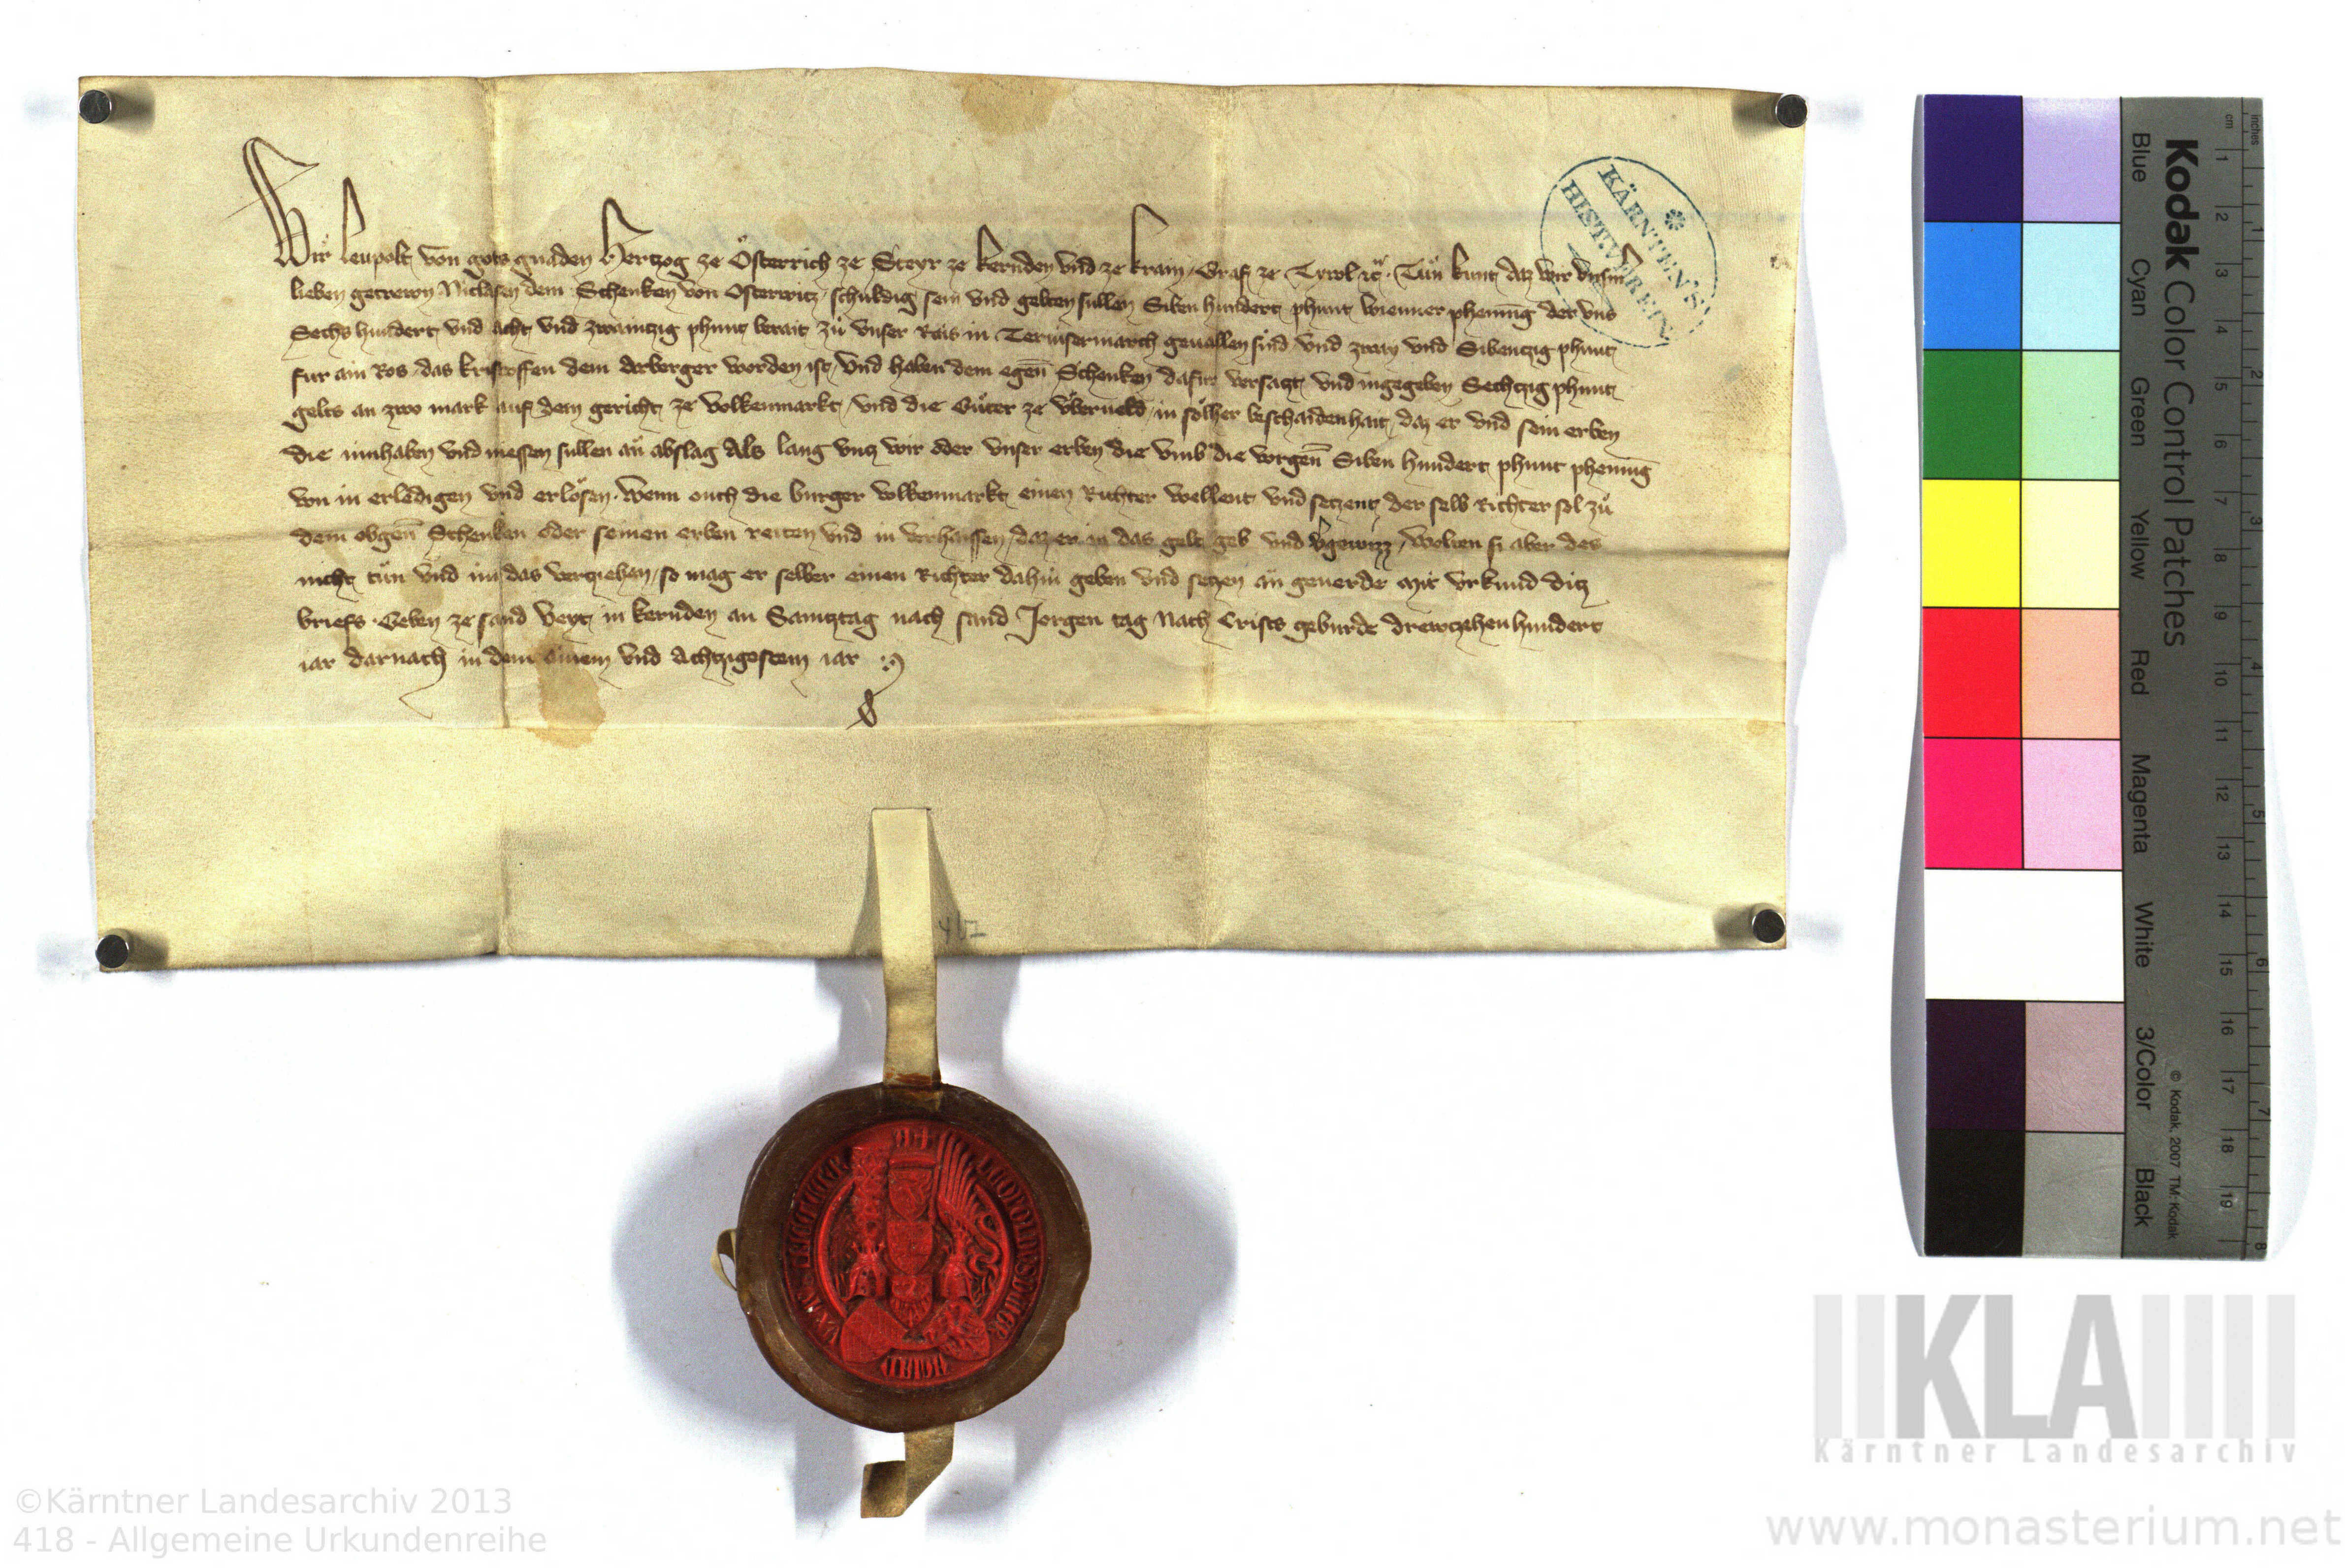 Wir Leupolt von gots gnaden Hertzog ze Österrich ze Steyr ze Kernden vnd ze Krain, Graf ze Tyrol etc. Tůn kunt daz wir vnserm
lieben getrewn Niclasen dem Schenken von Osterwitz, schuldig sein vnd gelten sullen Siben hundert phunt wienner phening der vns
Sechs hundert vnd acht vnd zwaintzig phunt berait zů vnser Rais in Teruisermarch geuallen sind vnd zway vnd Sibentzig phunt
fur ain Ros das Kristoffen dem worden ist, vnd haben dem egen̄ Schenken dafur versatzt vnd ingegeben Sechtzig phunt
gelts an zwo mark auf dem gericht ze Volkenmarkt, vnd die Gůter ze Vberueld, in sölher beschaidenhait, daz er vnd sein erben
die innhaben vnd niessen sullen an abslag Als lang vntz wir oder vnser erben die vmb die vorgen̄ Siben hundert phunt phening
von in erledigen vnd erlösen. Wenn ouch die burger Volkenmarkt einen Richter wellent vnd setzent, der selb Richter sol zů
dem obgen̄ Schenken oder seinen erben reiten vnd in verhaissen, daz er in das gelt geb vnd, wolten si aber des
nicht tůn vnd im das verziehen, so mag er selber einen Richter dahin geben vnd setzen an geuerde Mit vrkund ditz
briefs. Geben ze sand Veyt in Kernden an Samtztag nach sand Jorgen tag Nach Crists geburde drewtzehenhundert
iar darnach in dem einem vnd Achtzigostem iar
KÄRNTEN'S
HIST. VEREIN
Kodak Color Control Patches
Blue Cyan Green Yellow Red Magenta White 3/Color Black
© Kodak, 2007 TM: Kodak
cm 1 2 3 4 5 6 7 8 9 10 11 12 13 14 15 16 17 18 19
inches 1 2 3 4 5 6 7 8
KLA
Kärntner Landesarchiv
©Kärntner Landesarchiv 2013
418 - Allgemeine Urkundenreihe
www.monasterium.net